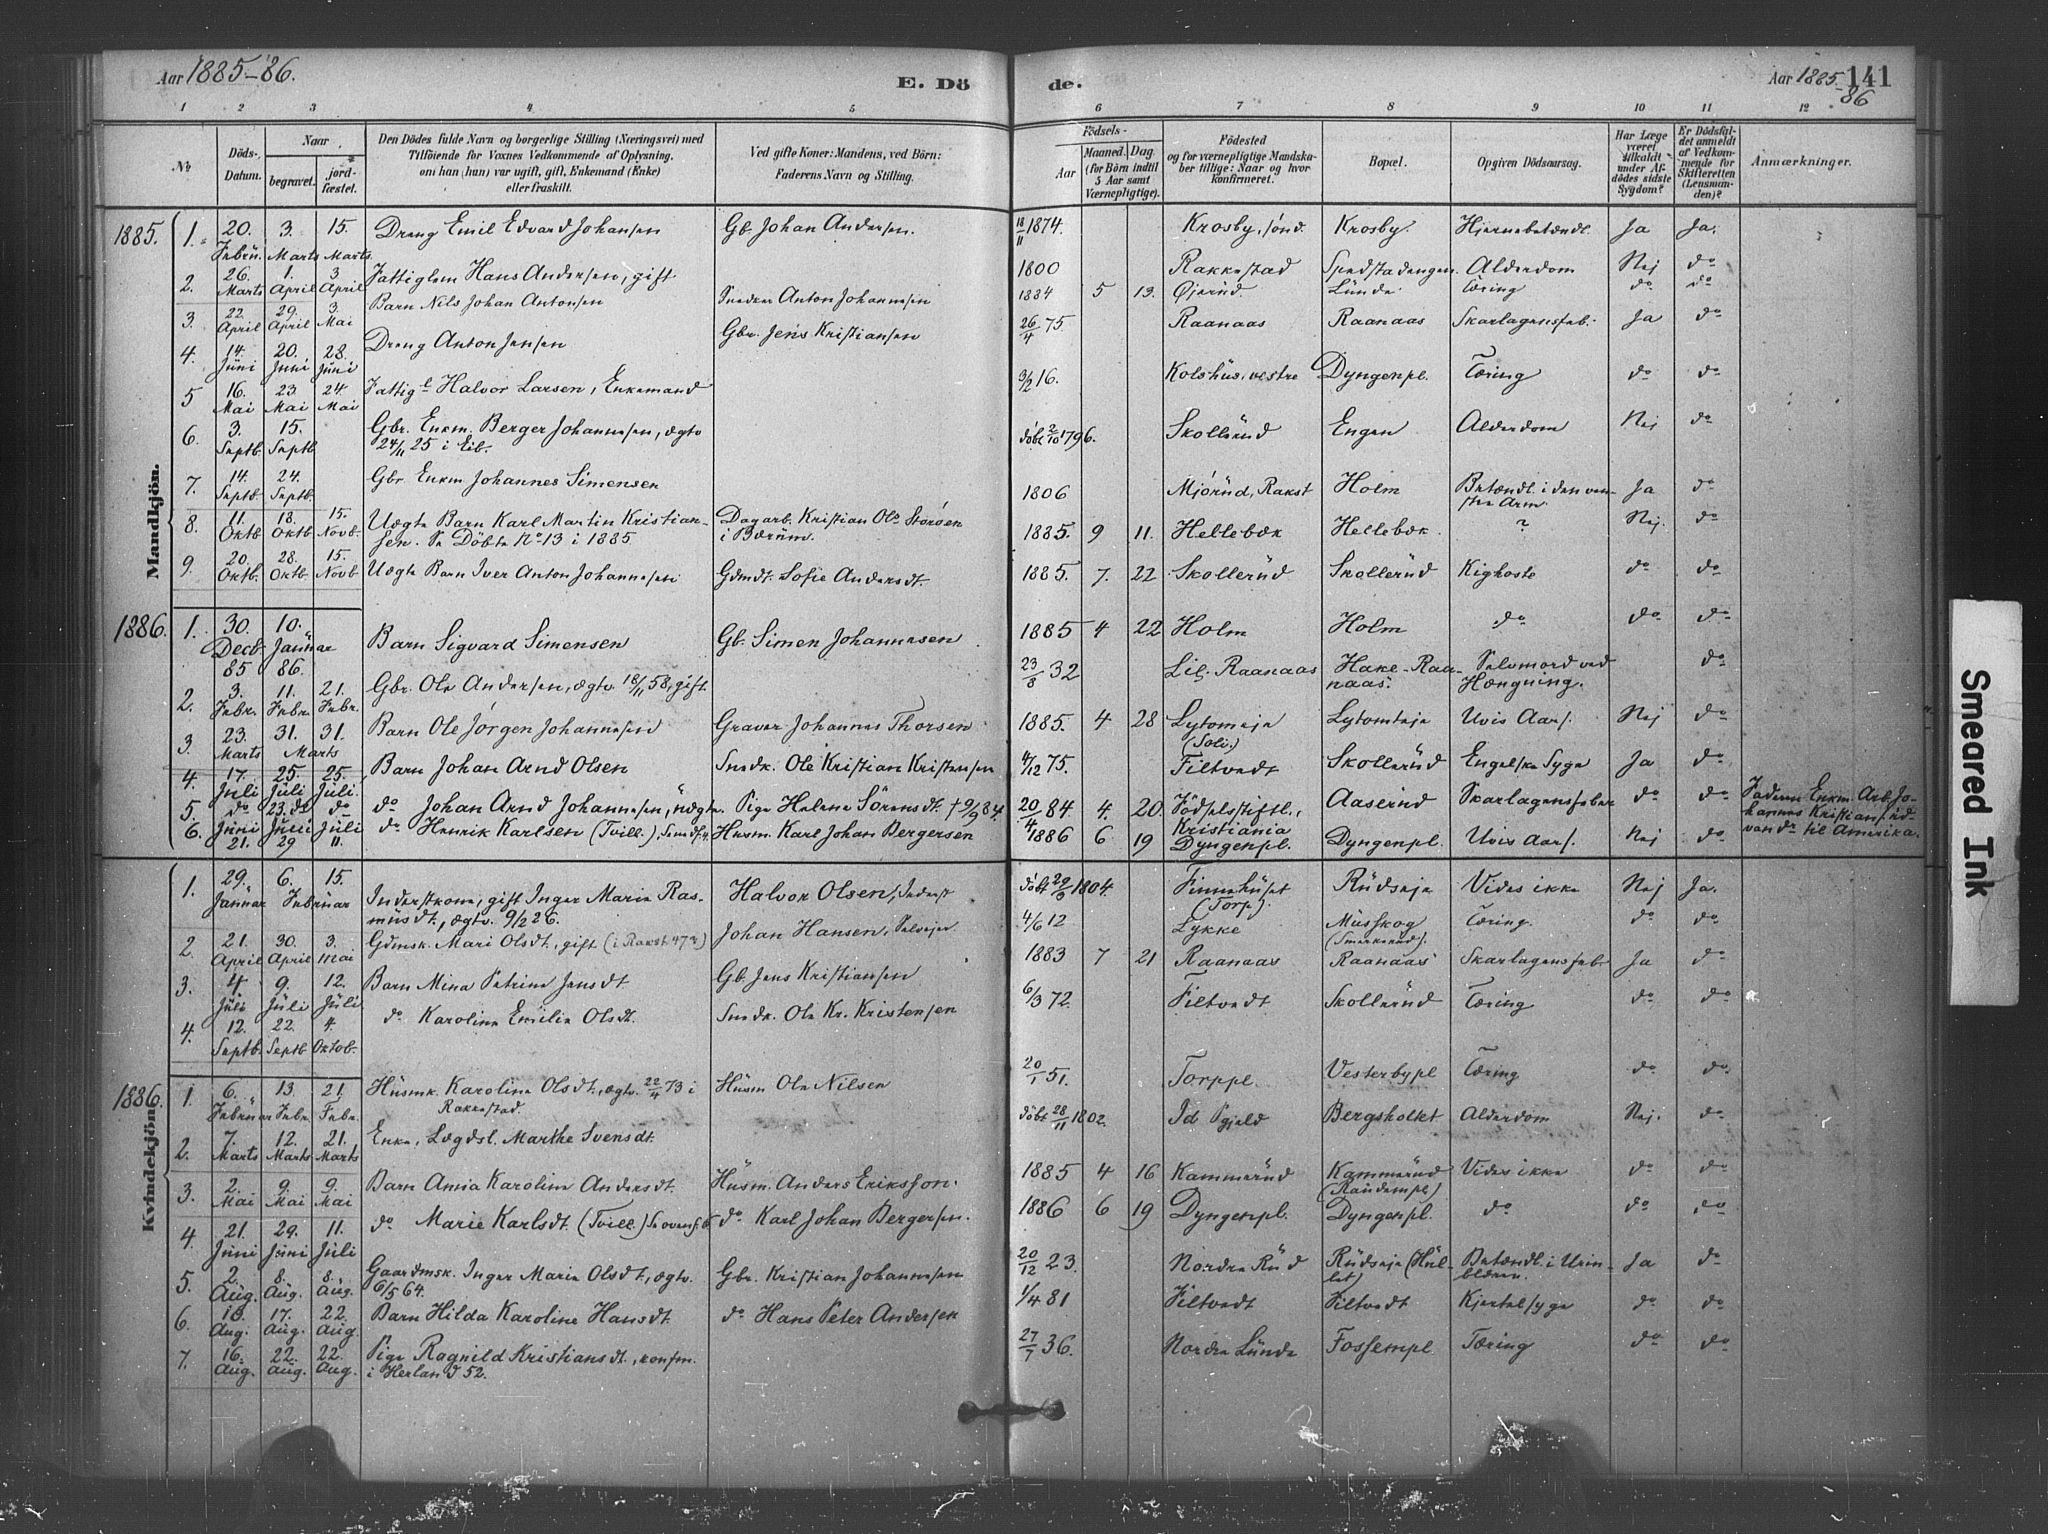 Aar 1885-86.
E. Dö
de.
Aar 1885-86
141
1 2 3 4 5 6 7 8 9 10 11 12
No
Döds-
Datum.
Naar
begravet.
jord-
fæstet.
Den Dödes fulde Navn og borgerlige Stilling (Næringsvei) med
Tilföiende for Voxnes Vedkommende af Oplysning,
om han (hun) var ugift, gift, Enkemand (Enke)
eller fraskilt.
Ved gifte Koner: Mandens, ved Börn:
Faderens Navn og Stilling.
Födsels-
Aar
Maaned. Dag.
(for Börn indtil
5 Aar samt
Værnepligtige).
Födested
og for værnepligtige Mandska-
ber tillige: Naar og hvor
konfirmeret.
Bopæl.
Opgiven Dödsaarsag.
Har Læge
været
tilkaldt
under Af-
dødes sidste
Sygdom?
Er Dödsfal-
det anmeldt
af Vedkom-
mende for
Skifteretten
(Lensman-
den)?
Anmærkninger.
Mandkjön.
1885. 1. 20. Febru. 3. Marts 15. Marts. Dreng Emil Edvard Johansen Gb. Johan Andersen. 18/11 1874. Krosby, sönd. Krosby. Hjernebetændl. Ja Ja.
2. 26. Marts 1. April 3 April Fattiglem Hans Andersen, gift 1800 Rakkestad Alderdom Nej do
3. 22. April 29. April 3. Mai Barn Nils Johan Antonsen Snedker Anton Johannesen 1884 5 13. Øjerud. Lunde. Tæring do do
4. 14. Juni 20. Juni 28. Juni Dreng Anton Jensen Gbr. Jens Kristiansen 26/4 75. Raanaas Raanaas Skarlagensfeb. Ja do
5 16. Mai 23. Mai 24. Mai Fattigl Halvor Larsen, Enkemand 3/2 16. Kolshus, vestre Dyngenpl. Tæring do do
6. 3. Septb 15. Septb Gbr. Enkm. Berger Johannesen, ægtv
24/11 25 i Eib. döbt 2/10 1796. Skollerud Engen Alderdom Nej do
7. 14. Septb. 24. Septb. Gbr. Enkm. Johannes Simensen 1806 Mjörud, Rakst Holm Betændl. i den ven-
stre Arm. Ja do
8. 11. Oktb 18. Oktb 15. Novb. Uægte Barn Karl Martin Kristian-
sen. Se Döbte No 13 i 1885 Dagarb. Kristian Ols Storöen
i Bærum. 1885. 9 11. Hellebæk Hellebæk ? Nej. do
9. 20. Oktb. 28. Oktb. 15. Novb Uægte Barn Iver Anton Johannesen Gdmdt. Sofie Andersdt. 1885. 7. 22 Skollerud Skollerud Kighoste do do
1886. 1. 30. Decb 85 10. Januar 86. Barn Sigvard Simensen Gb. Simen Johannesen 1885 4 22 Holm Holm do do do
2. 3. Febr. 11. Febr. 21. Febr. Gbr. Ole Andersen, ægtv 18/11 58, gift. 23/8 32 Lil. Raanaas Hake-Raa-
naas. Selvmord ved
Hængning. do
3. 23. Marts 31. 31. Marts Barn Ole Jørgen Johannesen Graver Johannes Thorsen 1885. 4 28 Lytomeja
(Soli.) Lytomteja Uvis Aars. Nej do
4. 17. Juli 25. Juli 25. Juli. Barn Johan Arnd Olsen Snedk. Ole Kristian Kristensen 4/12 75. Filtvedt Skollerud Engelske Syge Ja do
5. do 23. do do do Johan Arnd Johannesen, uægtv. Pige Helene Sörensdt. † 9/9 84. 20/4 84. 4. 20. Födselsstiftl.,
Kristiania Aaserud Skarlagensfeber do do Faderen Enkm. Arb. Jo-
hannes Kristians ud-
vandr til Amerika.
6. Juni 21. Juni 29 Juli 11. do Henrik Karlsen (Tvill.). Husm. Karl Johan Bergersen 1886 6 19 Dyngenpl. Dyngenpl. Uvis Aars. Nej do
Kvindekjön.
1. 29. Januar 6. 15. Februar Inderstkone, gift Inger Marie Ras-
musdt., ægtv. 9/2 26. Halvor Olsen, Inderst döbt 29/3 1804 Finnehuset
(Torp). Rudseja Vides ikke Nej Ja.
2. 21. April 30. April 3. Mai Gdmsk. Mari Olsdt., gift (i Rakst. 47) Johan Hansen, Selvejer 4/6 12 Lykke Musskog
(Smerkerud). Tæring. do do
3. 4 Juli 9. Juli 12. Juli Barn Mina Petrine Jensdt Gb. Jens Kristiansen 1883 7 21 Raanaas Raanaas Skarlagensfeb. Ja do
4. 12. Septb. 22. Septb 4. Oktob. do Karoline Emilie Olsdt. Snedk. Ole Kr. Kristensen 6/3 72. Filtvedt Skollerud Tæring do do
1886. 1. 6. Februar 13. Febr. 21. Febr. Husmk. Karoline Olsdt., ægtv. 22/4 73 i
Rakkestad. Husm Ole Nilsen 20/1 51. Torppl. Vesterbypl Tæring do do
2. 7. Marts 12. Marts 21. Marts Enke, Lægdsl. Marthe Svensdt. döbt 28/11 1802. Id Pgjeld Bergsholtet Alderdom Nej. do
3. 2. Mai 9. Mai 9. Mai Barn Anna Karoline Andersdt. Husm. Anders Eriksson. 1885 4 16 Kammerud Kammerud
(Raudempl) Vides ikke do do
4 21. Juni 29. Juni 11. Juli do Marie Karlsdt. (Tvill.) do Karl Johan Bergersen. 1886 6 19 Dyngenpl. Dyngenpl. do do do
5. 2. Aug. 8. Aug. 8. Aug. Gaardmsk. Inger Marie Olsdt., ægtv.
6/5 64. Gbr. Kristian Johannesen 20/12 23. Nordre Rud Rudseja (Hul-
let) Betændl. i Urin-
blæren. Ja do
6. 10. Aug. 17. Aug. 22. Aug Barn Hilda Karoline Hansdt. do Hans Peter Andersen 1/4 81 Filtvedt Filtvedt Kjertelsyge do do
7. 16. Aug. 22. Aug. 22. Aug. Pige Ragnild Kristiansdt., konfm.
i Herland 52. 27/7 36. Nordre Lunde Fossempl. Tæring do do
Smeared Ink